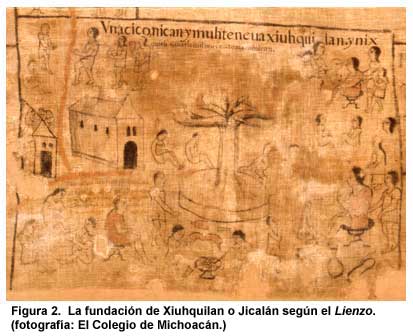 Vnacico nican ymuhtencua xiuhqui lan, ynix
Figura 2. La fundación de Xiuhquilan o Jicalán según el Lienzo.
(fotografía: El Colegio de Michoacán.)